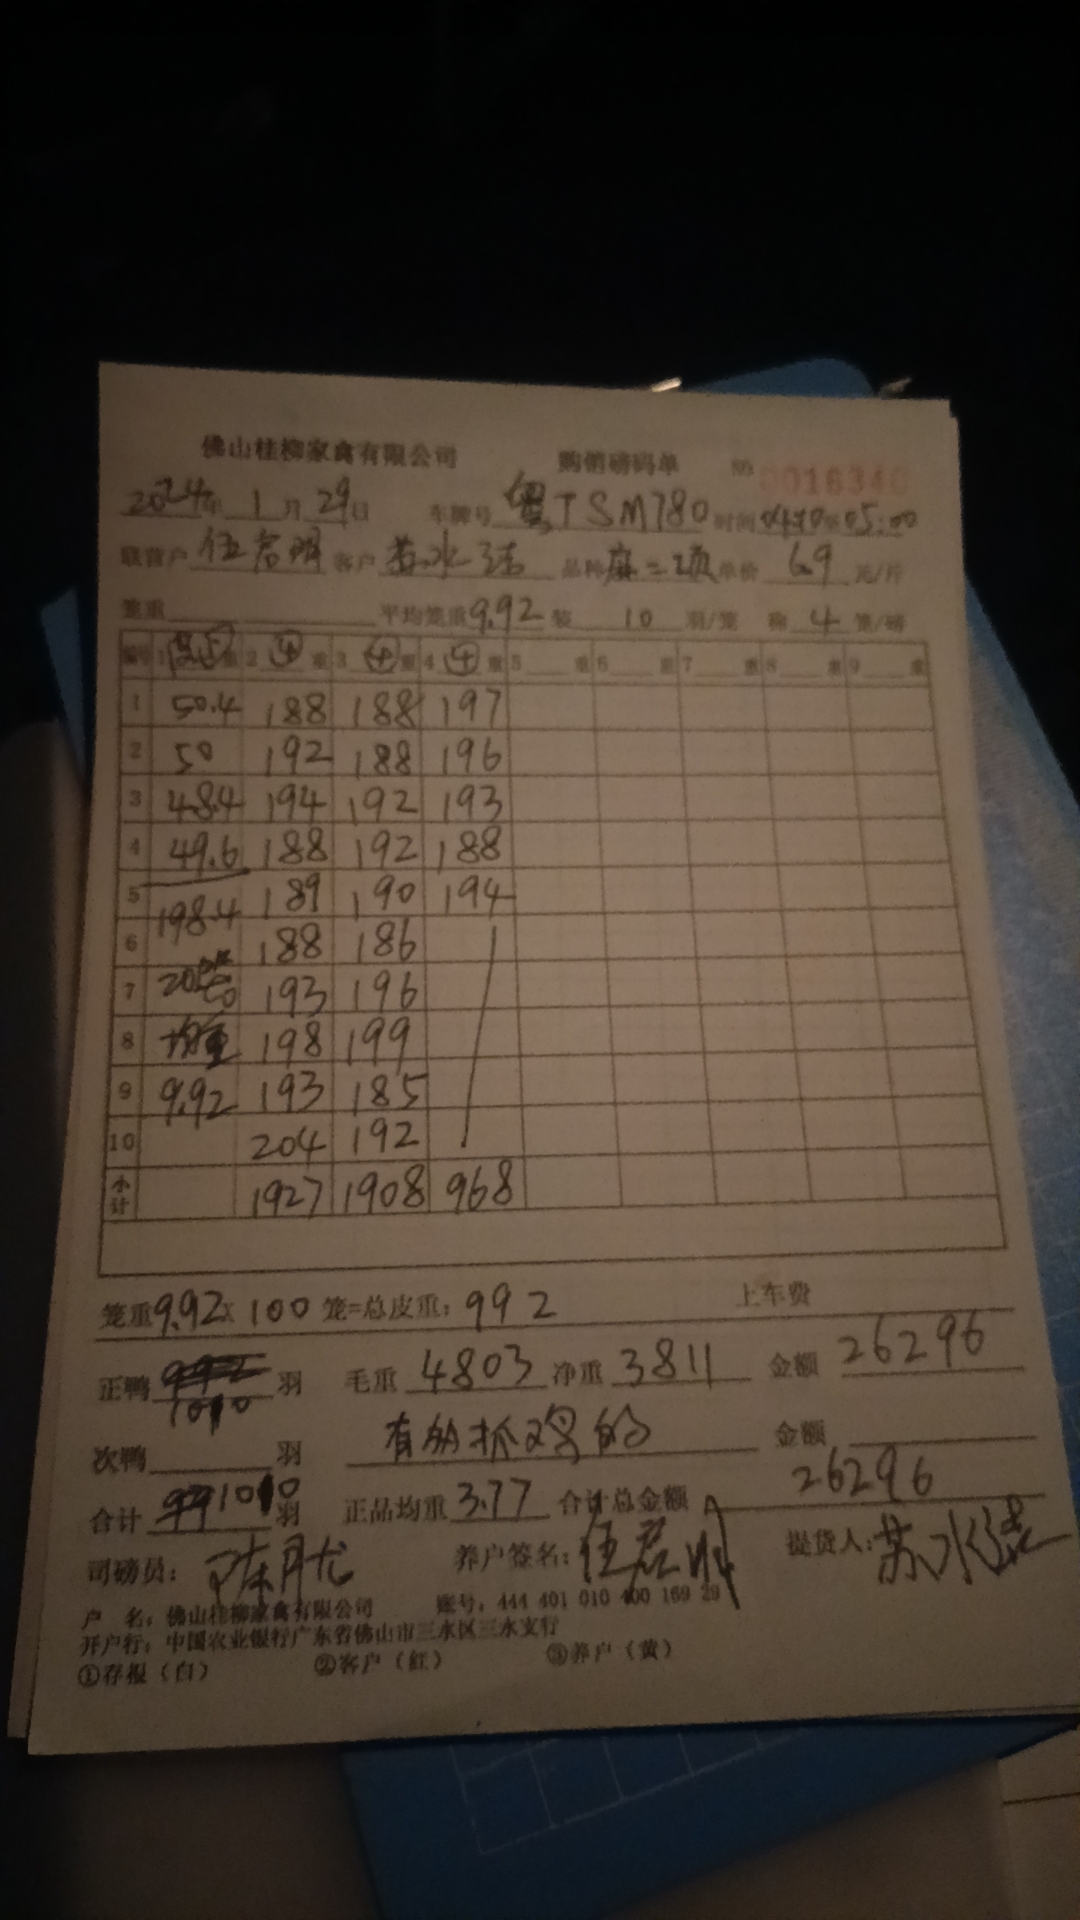 佛山桂柳家禽有限公司 购销磅码单 № 0016340
2024年 1月 29日 车牌号 粤TSM780 时间 05:00
联营户 伍君明 客户 苏水 品种 单价 6.9 元/斤
笼重 平均笼重 9.92 装 10 羽/笼 称 4 笼/磅
编号 1 重 2 ④ 重 3 ④ 重 4 ④ 重 5 重 6 重 7 重 8 重 9 重
1 50.4 188 188 197
2 50 192 188 196
3 48.4 194 192 193
4 49.6 188 192 188
5 198.4 189 190 194
6 188 186
7 20 193 196
8 均重 198 199
9 9.92 193 185
10 204 192
小计 1927 1908 968
笼重 9.92 x 100 笼=总皮重: 992 上车费
正鸭 992 1010 羽 毛重 4803 净重 3811 金额 26296
次鸭 羽 有的抓鸡的 金额
合计 1010 羽 正品均重 3.77 合计总金额 26296
司磅员: 陈月龙 养户签名: 伍君明 提货人: 苏水
户 名: 佛山桂柳家禽有限公司 账号: 444 401 010 400 169 29
开户行: 中国农业银行广东省佛山市三水区三水支行
①存根(白) ②客户(红) ③养户(黄)